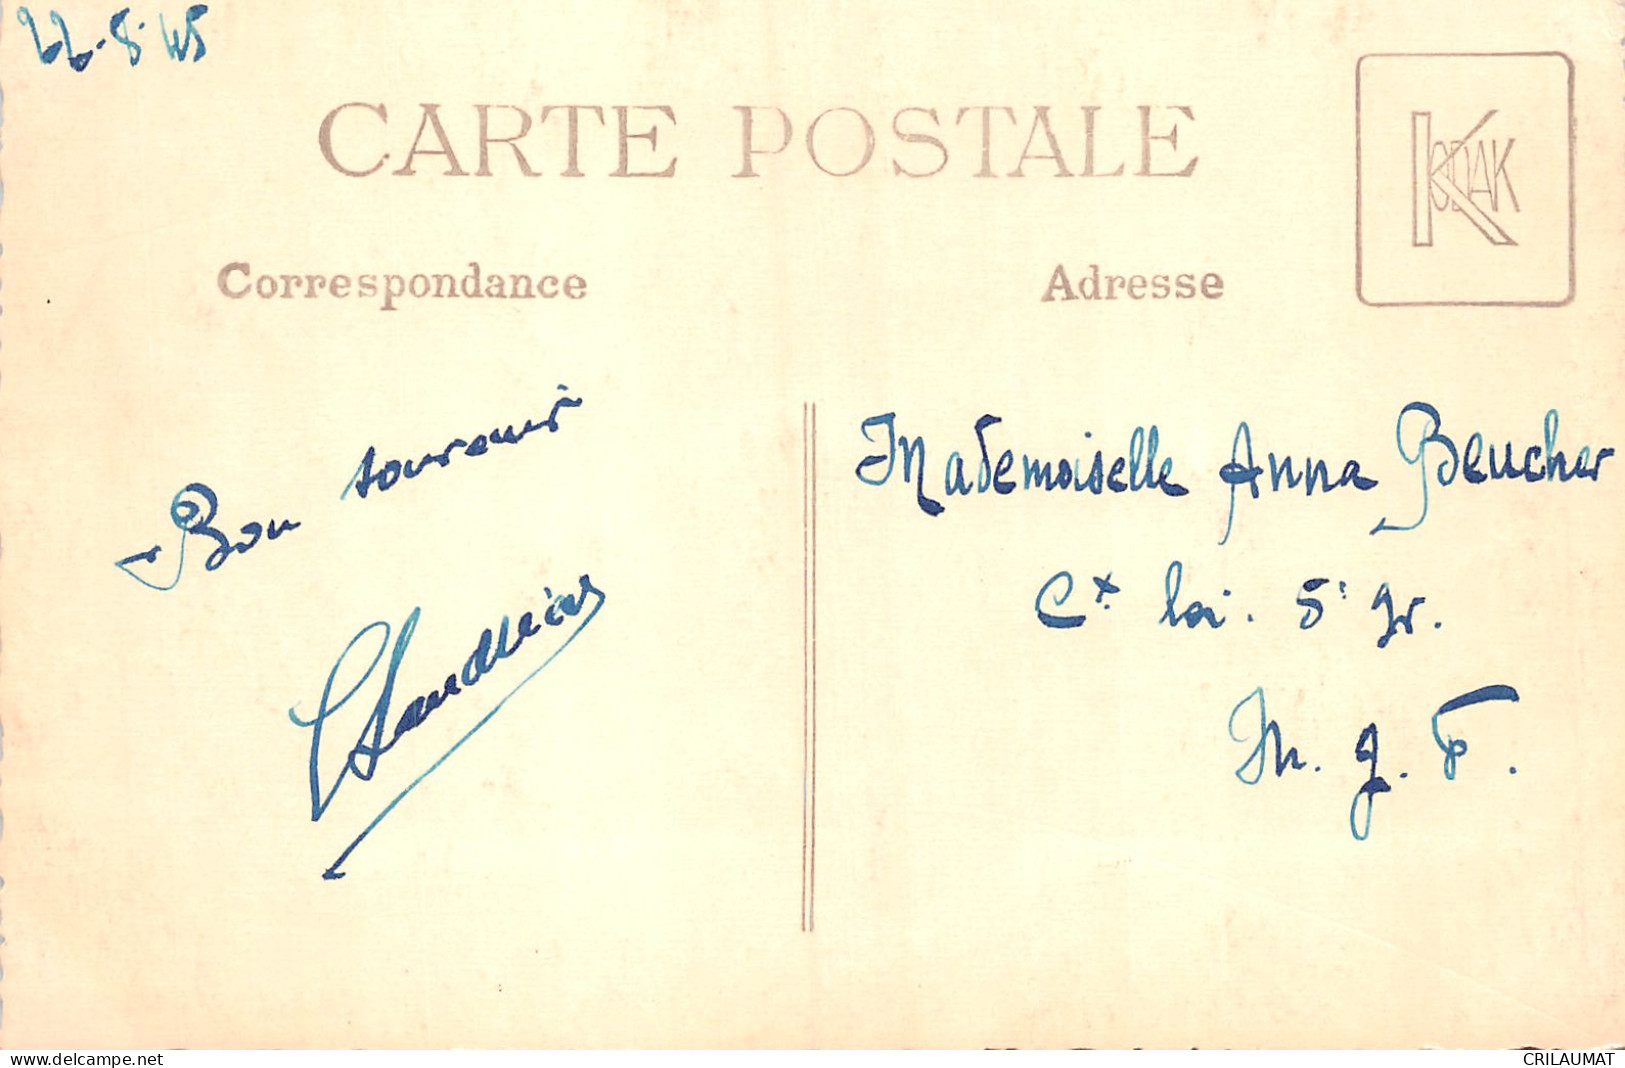 22-8-45
CARTE POSTALE
KODAK
Correspondance
Adresse
Bon souvenir
Mademoiselle Anna Beucher
Cx loi. 5e gr.
M. G. F.
www.delcampe.net
CRILAUMAT